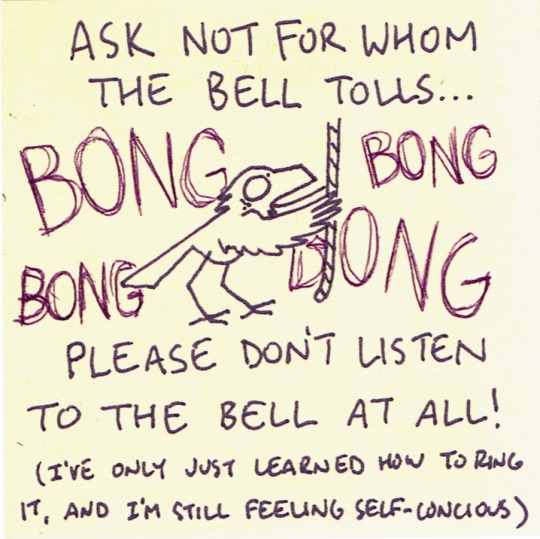 ASK NOT FOR WHOM
THE BELL TOLLS...
BONG
BONG
BONG
DONG
PLEASE DON'T LISTEN
TO THE BELL AT ALL!
(I'VE ONLY JUST LEARNED HOW TO RING
IT, AND I'M STILL FEELING SELF-CONCIOUS)